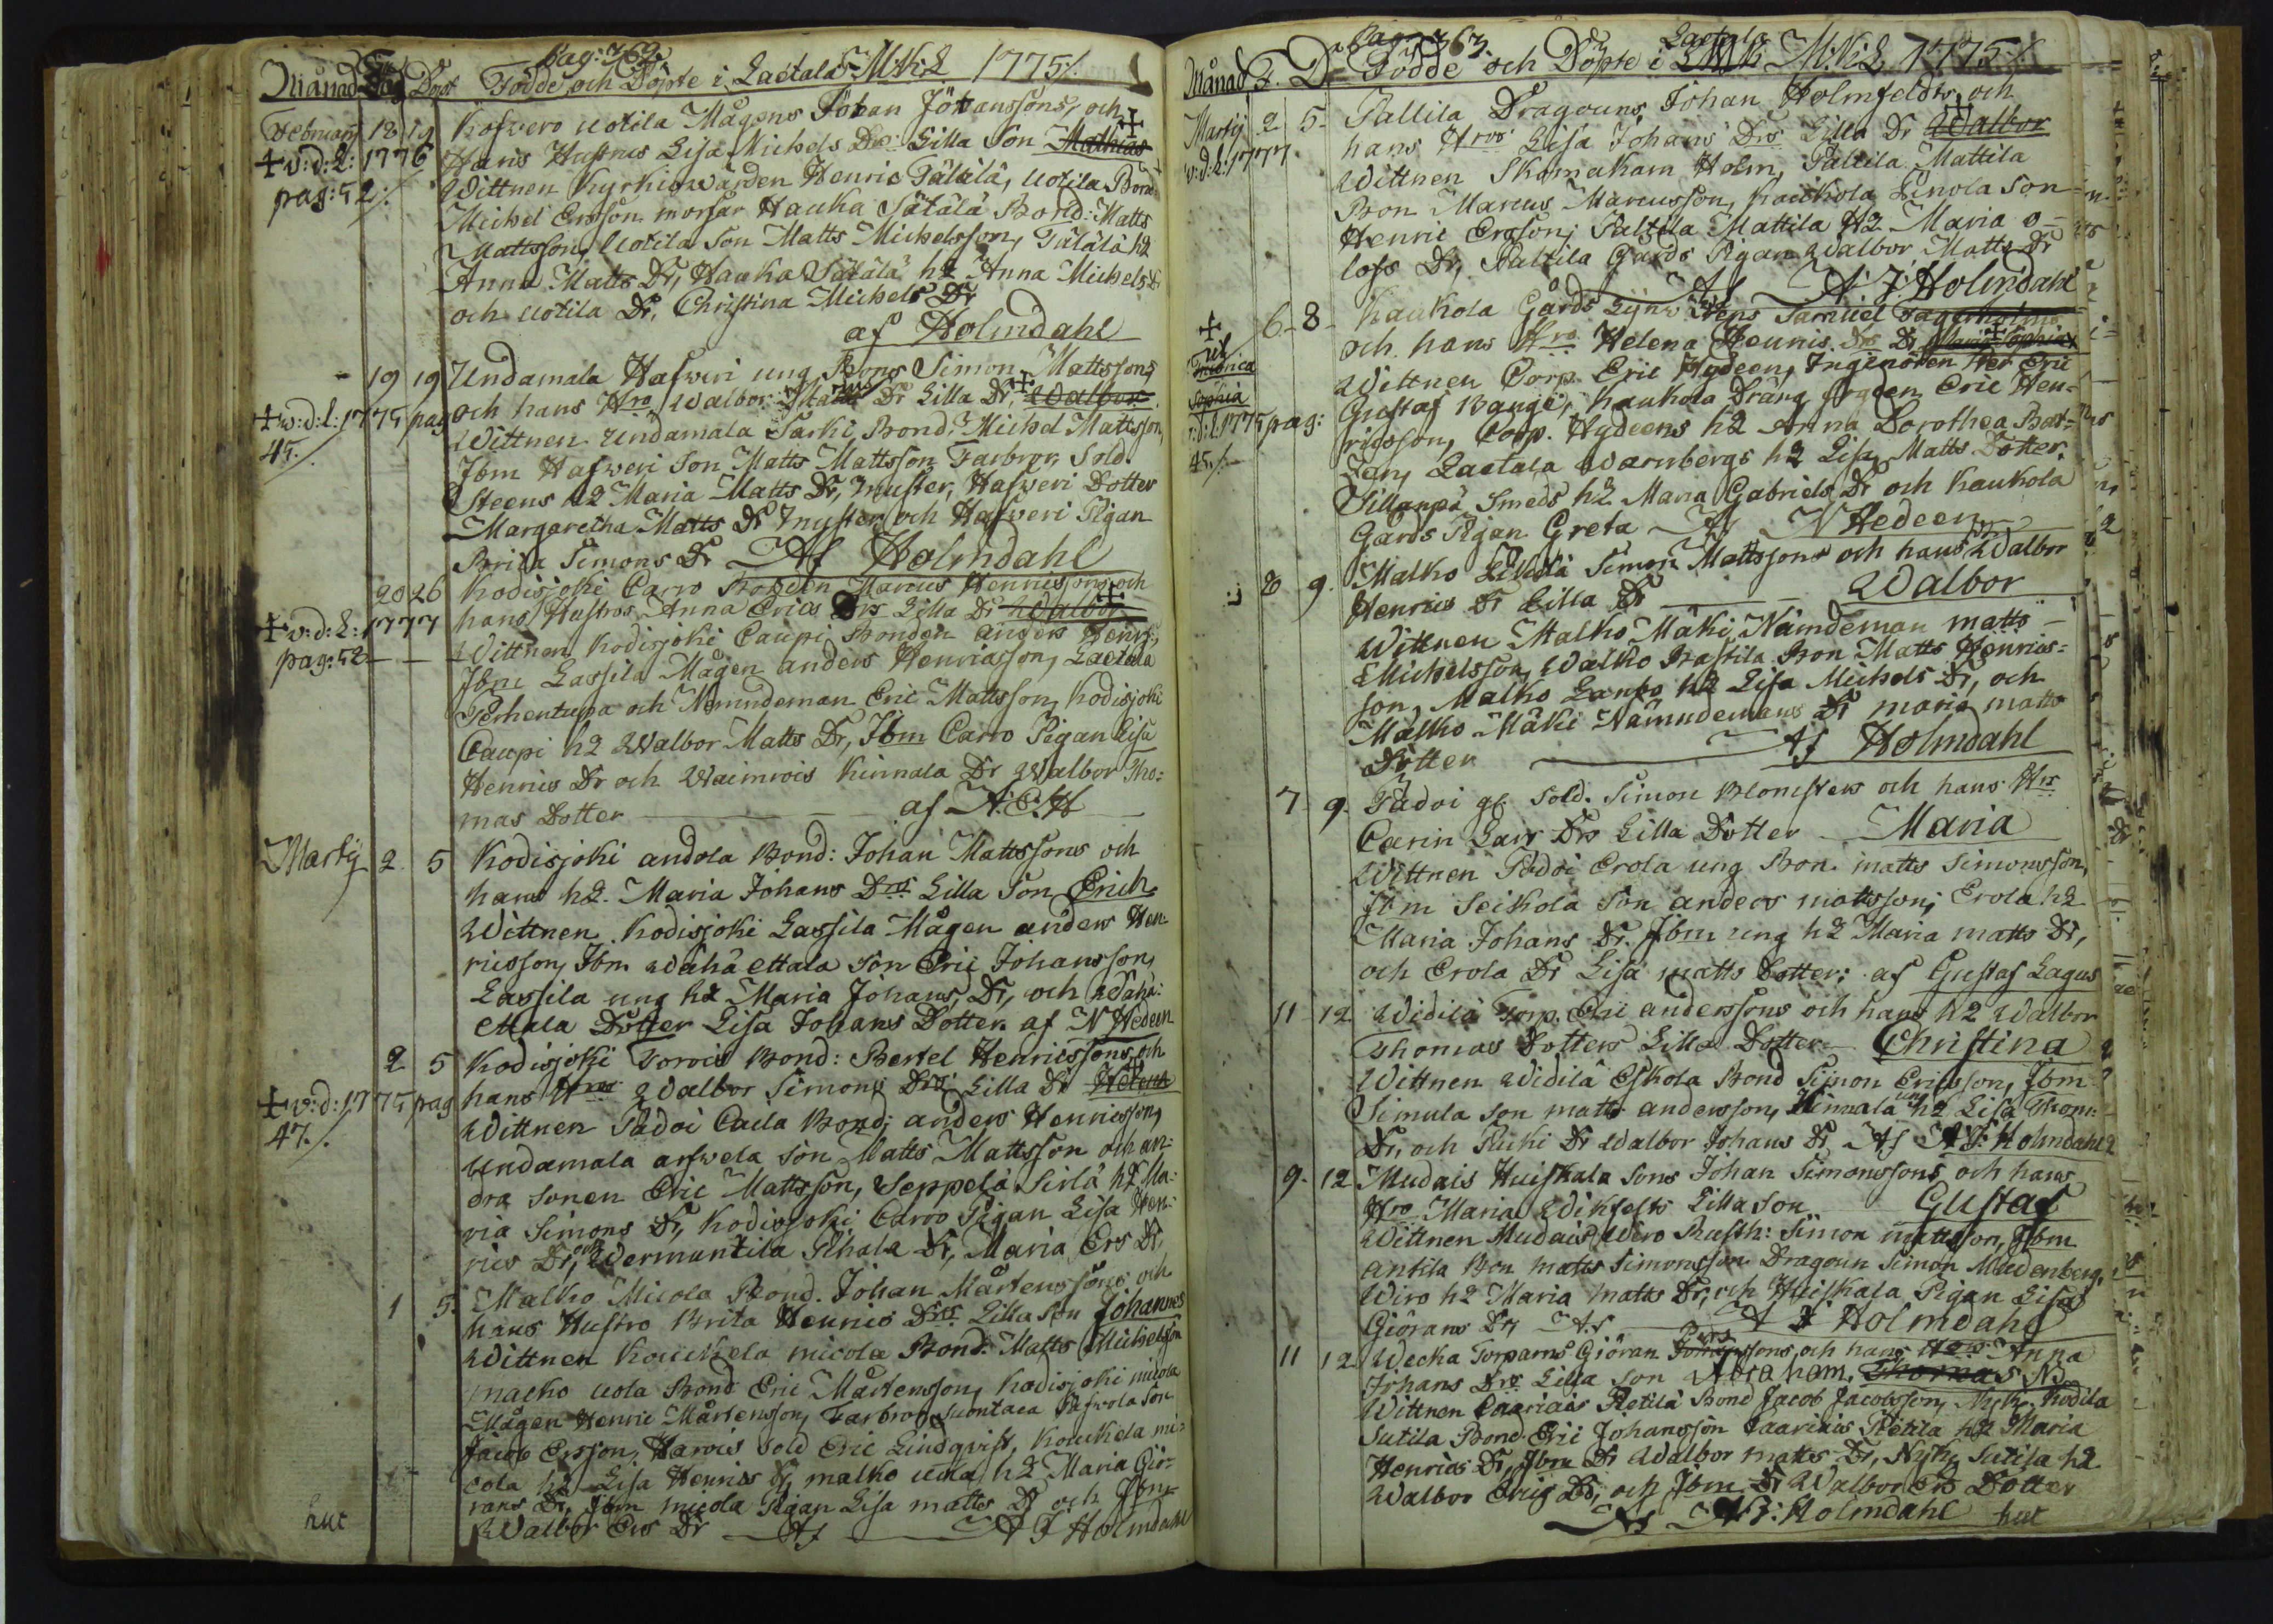 Pag: 362.
Månad Dag Döpt Födde och Döpte i Laetala M:K:L 1775 /.
February 18 19 Kofwero uotila Mågens Johan Johanssons, och
+ v:d:L: 1776 Hans Hustrus Lisa Michels Drs Lilla Son Mathias
pag: 52 /. Wittnen Kyrkiowärden Henric Tälälä, Uotila Bond
Michel Ersson morfar Hauka Sätälä Bond: Matts
Mattsson, Uotila Son Matts Michelsson, Tälälä h2
Anna Matts Dr, Hauka Sätälä h2 Anna Michels Dr
och uotila Dr, Christina Michels Dr
af Holmdahl
19 19 Undamala Hafweri ung Bons Simon Mattssons
+ v:d:l: 1775 pag och hans Hro Walbor Dr Lilla Dr Walbor
45 /. Wittnen Undamala Sarki Bond: Michel Mattsson,
Jbm Hafweri Son Matts Mattsson Farbror, Sold.
Steens h2 Maria Matts Dr, muster, Hafweri Dotter
Margaretha Matts Dr muster och Hafweri Pigan
Brita Simons Dr Af Holmdahl
20 26 Kodisjoki Carro Bonden Marcus Henricssons och
+ v:d:L: 1777 hans Hustros Anna Erics Drs Lilla Dr Walbor
pag: 52 Wittnen Kodisjoki Caupi Bonden anders Henr:
Jbm Lassila Mågen anders Henricsson, Laetala
Perhentupa och Nämndeman Eric Mattsson, Kodisjoki
Caupi h2 Walbor Matts Dr, Jbm Carro Pigan Lisa
Henrics Dr och Waimrois Kinnala Dr Walbor Tho=
mas Dotter af A:E:H
Martij 2 5 Kodisjoki andola Bond: Johan Mattssons och
hans h2. Maria Johans Drs Lilla Son Erich
Wittnen Kodisjoki Lassila Mågen anders Hen
ricsson, Jbm Wähä ettala Son Eric Johansson,
Lassila ung h2 Maria Johans Dr, och Wähä:
ettala Dotter Lisa Johans Dotter. af N Hedeen
2 5 Kodisjoki Torvois Bond: Bertel Henricssons, och
+ v:d: 1775 pag hans Hros Walbor Simons Drs Lilla Dr Helena
47. /. Wittnen Padoi Caula Bond: anders Henricsson,
Undamala arfwela Son Matts Mattsson och an:
dra sonen Eric Mattsson, Seppelä Sirlä h2 Ma:
ria Simons Dr, Kodisjoki Carro Pigan Lisa Hen:
rics Dr, och Wermuntila Pihala Dr, Maria Ers Dr
1 5. Malko Micola Bond. Johan Mårtenssons och
hans Hustro Brita Henrics Drs Lilla Son Johannes
Wittnen Koukela micola Bond: Matts Michelsson
malko uola Bond Eric Mårtensson, Kodisjoki micola
Mågen Henric Mårtensson, Farbror, Suontaca Päfwola Son
Jacob Ersson, Harois Sold Eric Lindqvist, Koukela mi:
cola h2 Lisa Henrics Dr, malko uola h2 Maria Giö:
rans Dr, Jbm micola Pigan Lisa matts Dr och Jbm
huc Walbor Ers Dr Af A J Holmdahl
Pag: 363.
Månad F. D. Födde och Döpte i Laetala M:K:L 1775 /.
Martij 2 5 Paltila Dragouns Johan Holmfeldts, och
v:d:L: 1777. hans Hros Lisa Johans Drs Lilla Dr Walbor
Wittnen Skomakaren Holm, Paltila Mattila
Bon Marcus Marcusson, Kaukola Linola Son
Henric Ersson, Paltila Mattila H2 Maria o=
lofs Dr, Paltila Gårds Pigan Walbor Matts Dr
Af A J Holmdahl
6 8 Kaukola Gårds Samuel Fagerholms
och hans Hro Helena Henrics Drs Dr Maria Sophia
Ulrica Wittnen Corp. Eric Hydeen, Ingenören Herr Eric
Sophia Gustaf Bange, Kaukola Dräng Eric Hen=
v:d:l: 1775 pag: ricsson, Corp. Hydeens h2 Anna Dorothea
45. /. Laetala Warnbergs h2 Lisa Matts Dotter,
Sillanpä Smeds h2 Maria Gabriels Dr och Kaukola
Gårds Pigan Greta Af N Hedeen
8 9. Malko Simon Mattssons och hans Hrs Walbor
Henrics Dr Lilla Dr Walbor
Wittnen Malko Mäki Nämdeman matts
Michelsson, Walko Prastila Bon Matts Henrics=
son, Malko Laurko h2 Lisa Michels Dr, och
Malko Mäki Nämndemans Dr maria matts
Dotter Af Holmdahl
7 9. Padoi gl. Sold. Simon Blomsters och hans Hrs
Carin Lars Drs Lilla Dotter Maria
Wittnen Padoi Erola ung Bon. matts Simonsson,
Jbm Seikola Son anders mattsson, Erola h2
Maria Johans Dr. Jbm ung h2 Maria matts Dr,
och Erola Dr Lisa matts Dotter: af Gustaf Lagus
11 12 Widilä Torp. Eric anderssons och hans h2 Walbor
Thomas Dotters Lilla Dotter Christina
Wittnen Widilä Eskola Bond Simon Ericsson, Jbm
Simula Son matts andersson, Kinnala ung h2 Lisa Thom:
Dr, och Ruki Dr Walbor Johans Dr, Af A J: Holmdahl
9. 12 Mudais Huiskala Sons Johan Simonssons och hans
Hro Maria Wikfelts Lilla Son Gustaf
Wittnen Mudais Wiro Rusth: Simon mattsson, Jbm
antila Bon matts Simonsson Dragoun Simon Mudenberg,
Wiro h2 Maria matts Dr, och Huiskala Pigan Lisa
Giörans Dr Af A J Holmdahl
11 12 Wecka Torparns Giöran Ers sons, och hans Hros Anna
Johans Drs Lilla Son Abraham, Thomas
Wittnen Caariais Retilä Bond Jacob Jacobsson, Nyk: Kodila
Sutila Bond Eric Johansson Caariais Retila h2 Maria
Henrics Dr, Jbm Dr Walbor matts Dr, Nyk. Sutila h2
Walbor Erics Dr, och Jbm Dr Walbor Ers Dotter
Af A J: Holmdahl huc